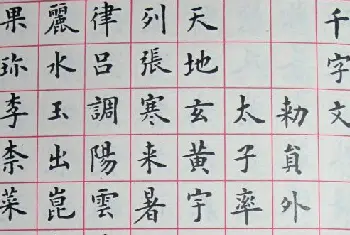 千字文
勅貟外
太子率
天地玄黃宇
列張寒来暑
律呂調陽雲
麗水玉出崑
果珎李柰菜